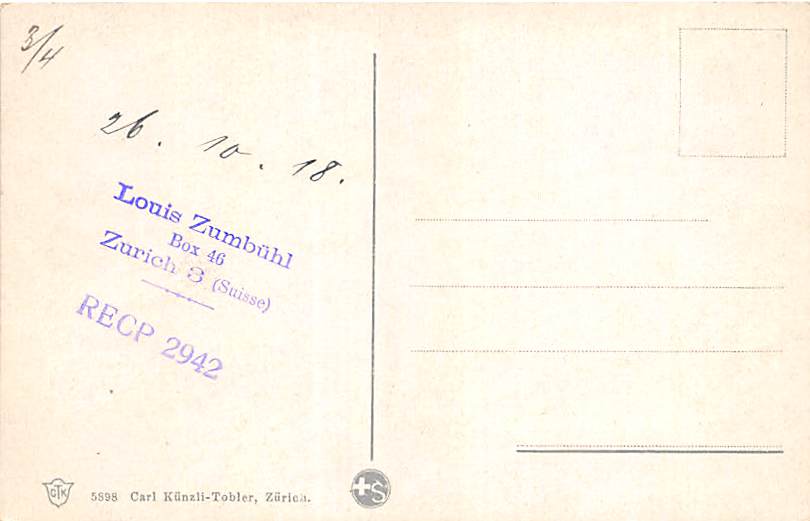 3/4
26. 10. 18.
Louis Zumbühl
Box 46
Zurich 3 (Suisse)
RECP 2942
CTK
5898 Carl Künzli-Tobler, Zürich.
S